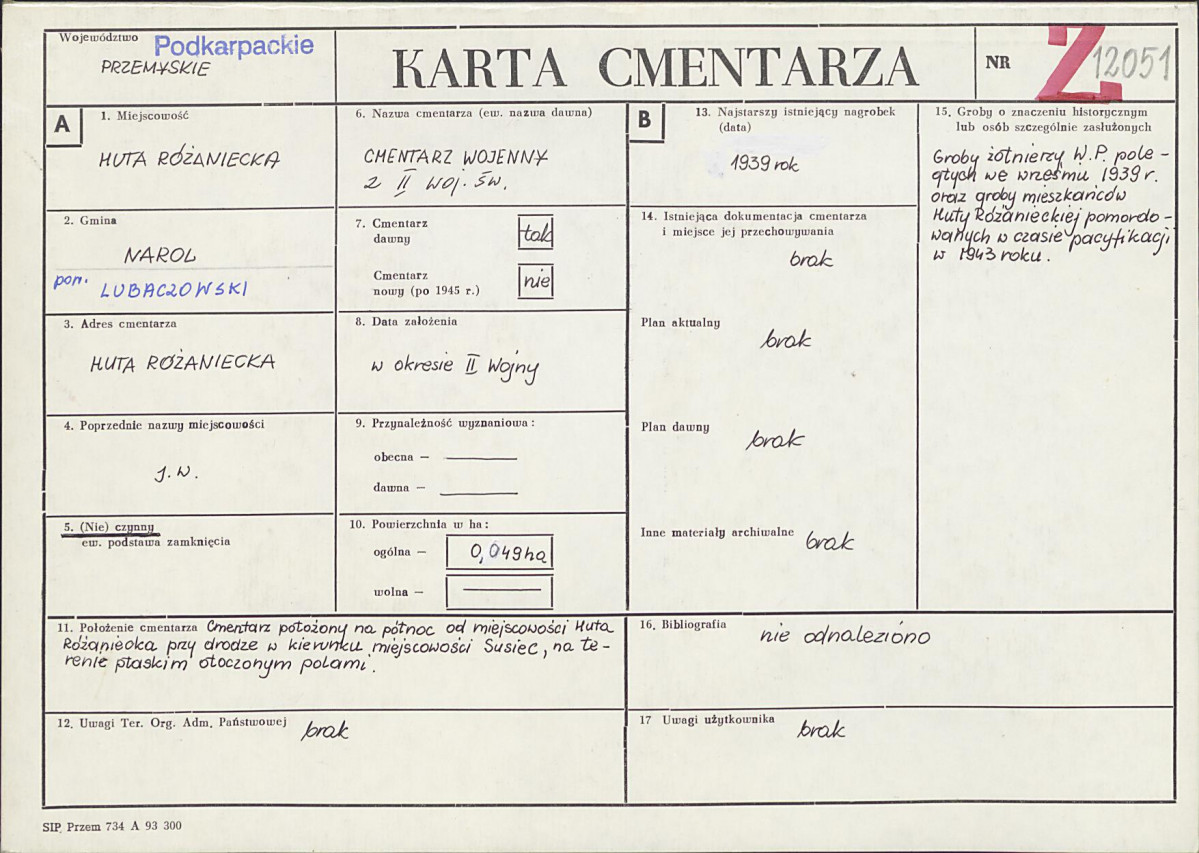 Województwo Podkarpackie
PRZEMYSKIE
KARTA CMENTARZA
NR Z 12051
A
1. Miejscowość
HUTA RÓŻANIECKA
2. Gmina
NAROL
pow. LUBACZOWSKI
3. Adres cmentarza
HUTA RÓŻANIECKA
4. Poprzednie nazwy miejscowości
J.W.
5. (Nie) czynny
ew. podstawa zamknięcia
6. Nazwa cmentarza (ew. nazwa dawna)
CMENTARZ WOJENNY
Z II WOJ. ŚW.
7. Cmentarz
dawny
tak
Cmentarz
nowy (po 1945 r.)
nie
8. Data założenia
w okresie II Wojny
9. Przynależność wyznaniowa:
obecna —
dawna —
10. Powierzchnia w ha:
ogólna — 0,049ha
wolna —
11. Położenie cmentarza Cmentarz położony na północ od miejscowości Huta
Różaniecka przy drodze w kierunku miejscowości Susiec, na te-
renie płaskim otoczonym polami.
12. Uwagi Ter. Org. Adm. Państwowej brak
B
13. Najstarszy istniejący nagrobek
(data)
1939 rok
14. Istniejąca dokumentacja cmentarza
i miejsce jej przechowywania
brak
Plan aktualny
brak
Plan dawny
brak
Inne materiały archiwalne brak
15. Groby o znaczeniu historycznym
lub osób szczególnie zasłużonych
Groby żołnierzy W.P. pole-
głych we wrześniu 1939 r.
oraz groby mieszkańców
Huty Różanieckiej pomordo-
wanych w czasie pacyfikacji
w 1943 roku.
16. Bibliografia nie odnaleziono
17 Uwagi użytkownika brak
SIP. Przem 734 A 93 300